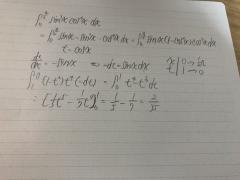 ∫₀^{π/2} sin³x cos⁴x dx
= ∫₀^{π/2} sinx · sin²x · cos⁴x dx = ∫₀^{π/2} sinx(1-cos²x)cos⁴x dx
t = cosx
dt/dx = -sinx ⇔ -dt = sinx dx
x | 0 → π/2
t | 1 → 0
∫₁⁰ (1-t²)t⁴(-dt) = ∫₀¹ t⁴-t⁶ dt
= [1/5 t⁵ - 1/7 t⁷]₀¹ = 1/5 - 1/7 = 2/35